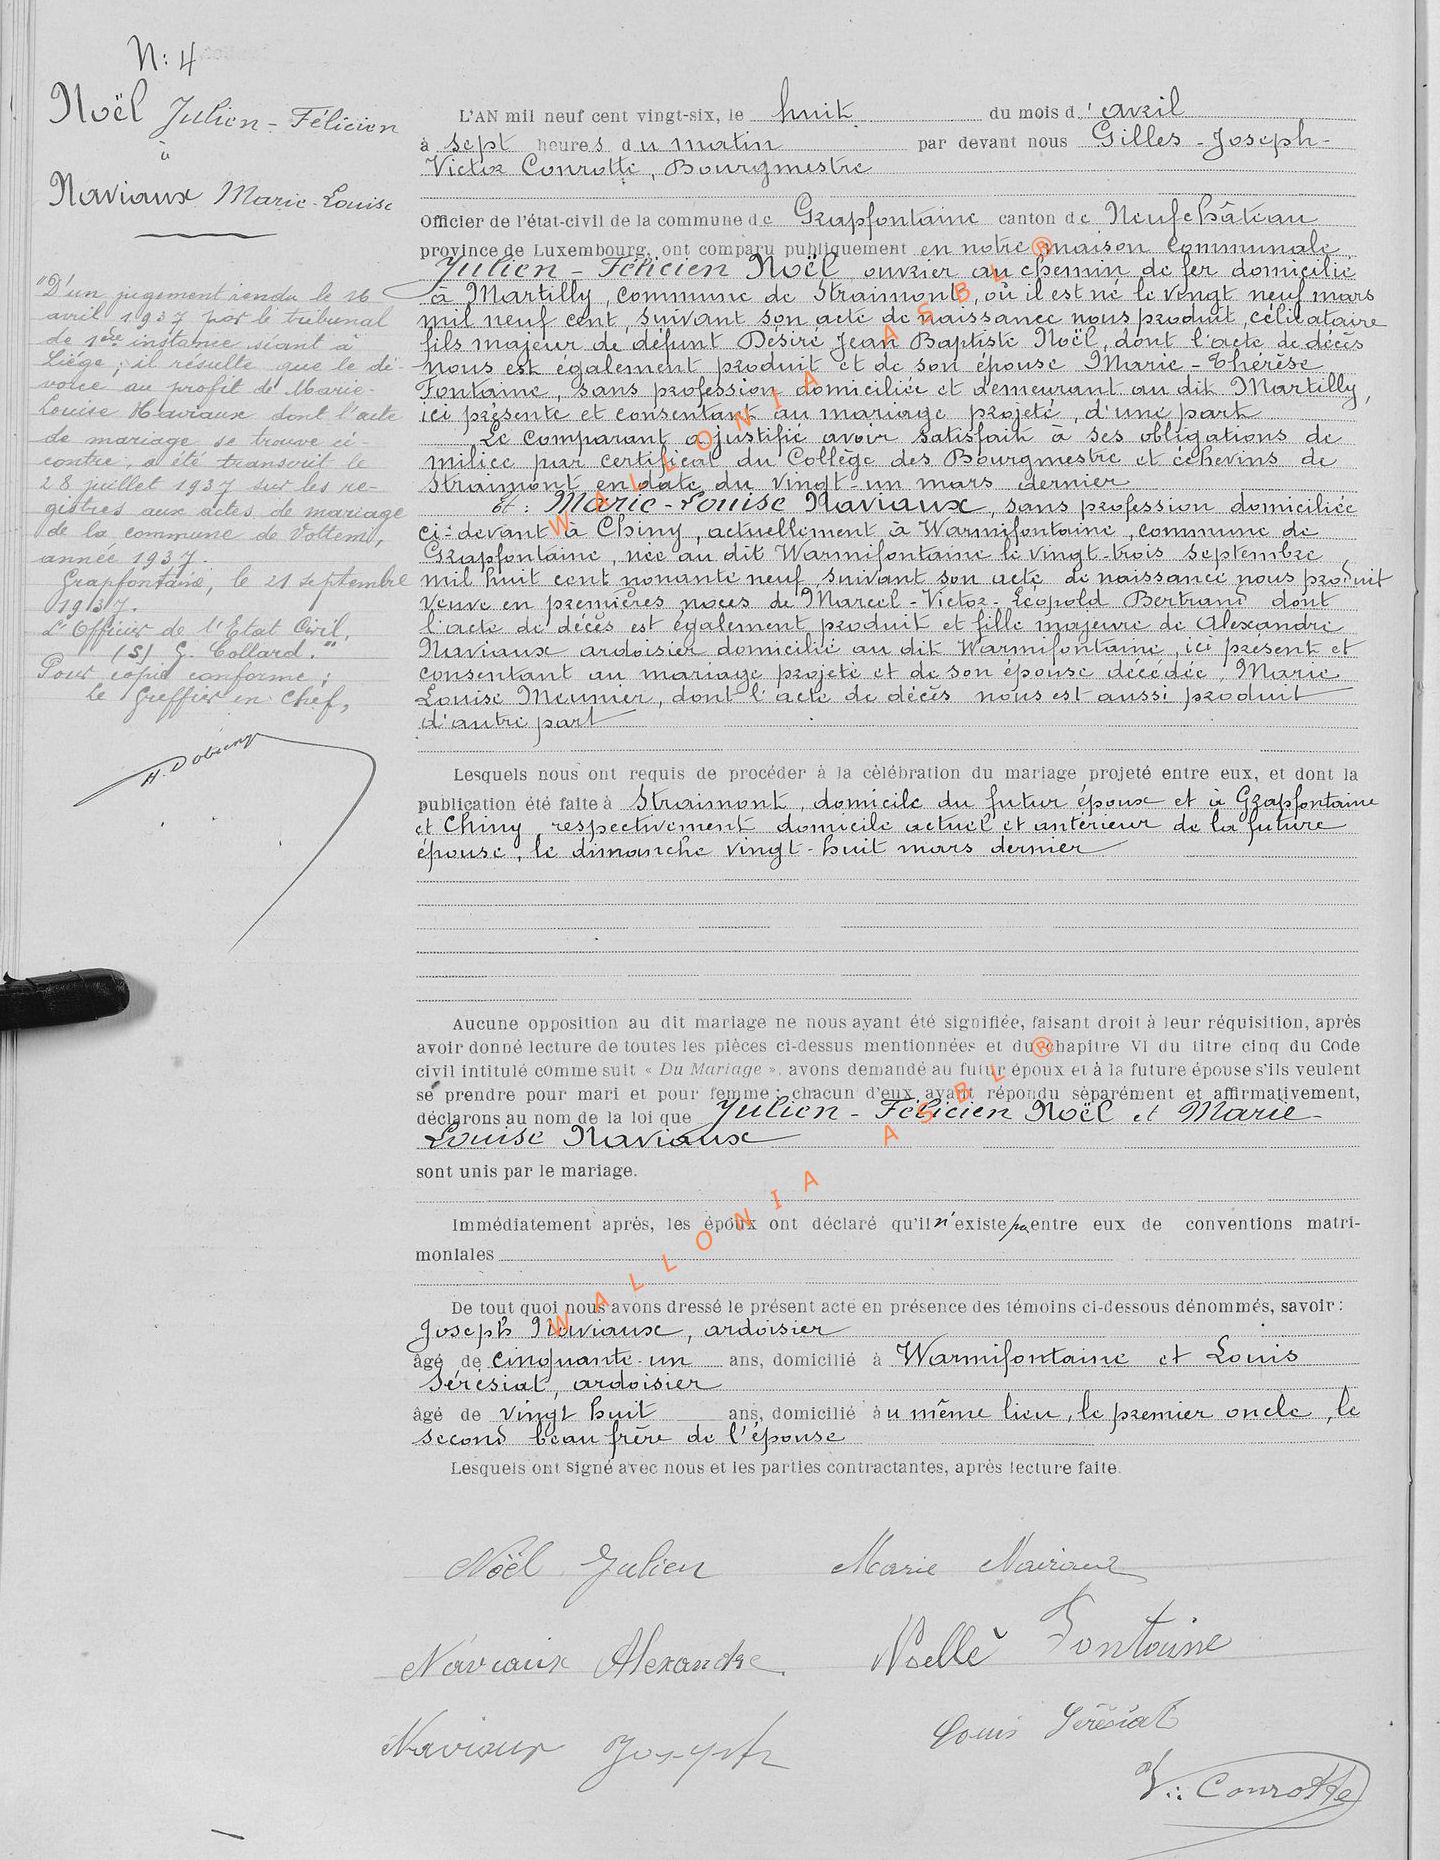 N: 4
Noël Julien - Félicien
à
Naviaux Marie-Louise
"D'un jugement rendu le 16
avril 1937 par le tribunal
de 1ère instance séant à
Liége ; il résulte que le di-
vorce au profit de Marie
Louise Naviaux dont l'acte
de mariage se trouve ci-
contre, a été transcrit le
28 juillet 1937 sur les re-
gistres aux actes de mariage
de la commune de Vottem,
année 1937.
Grapfontaine, le 21 septembre
1937.
L'Officier de l'Etat Civil,
(S) G. Collard."
Pour copie conforme ;
le Greffier en Chef,
L'AN mil neuf cent vingt-six, le huit du mois d'avril
à sept heures du matin par devant nous Gilles - Joseph -
Victor Conrotte, Bourgmestre
Officier de l'état-civil de la commune de Grapfontaine canton de Neufchâteau
province de Luxembourg, ont comparu publiquement en notre maison communale
Julien - Félicien Noël ouvrier au chemin de fer domicilié
à Martilly, commune de Straimont, où il est né le vingt neuf mars
mil neuf cent, suivant son acte de naissance nous produit, célibataire
fils majeur de défunt Désiré Jean Baptiste Noël, dont l'acte de décès
nous est également produit et de son épouse Marie - Thérèse
Fontaine, sans profession domiciliée et demeurant au dit Martilly,
ici présente et consentant au mariage projeté, d'une part
Le comparant a justifié avoir satisfait à ses obligations de
milice par certificat du Collège des Bourgmestre et échevins de
Straimont en date du vingt-un mars dernier
et : Marie-Louise Naviaux, sans profession domiciliée
ci-devant à Chiny, actuellement à Warmifontaine, commune de
Grapfontaine, née au dit Warmifontaine le vingt-trois septembre
mil huit cent nonante neuf suivant son acte de naissance nous produit
veuve en premières noces de Marcel - Victor - Léopold Bertrand dont
l'acte de décès est également produit et fille majeure de Alexandre
Naviaux ardoisier domicilié au dit Warmifontaine, ici présent et
consentant au mariage projeté et de son épouse décédée Marie
Louise Meunier, dont l'acte de décès nous est aussi produit
d'autre part
Lesquels nous ont requis de procéder à la célébration du mariage projeté entre eux, et dont la
publication été faite à Straimont, domicile du futur époux et à Grapfontaine
et Chiny, respectivement domicile actuel et antérieur de la future
épouse, le dimanche vingt-huit mars dernier
Aucune opposition au dit mariage ne nous ayant été signifiée, faisant droit à leur réquisition, après
avoir donné lecture de toutes les pièces ci-dessus mentionnées et du chapitre VI du titre cinq du Code
civil intitulé comme suit « Du Mariage », avons demandé au futur époux et à la future épouse s'ils veulent
se prendre pour mari et pour femme ; chacun d'eux ayant répondu séparément et affirmativement,
déclarons au nom de la loi que Julien - Félicien Noël et Marie -
Louise Naviaux
sont unis par le mariage.
Immédiatement après, les époux ont déclaré qu'il n'existe pas entre eux de conventions matri-
moniales
De tout quoi nous avons dressé le présent acte en présence des témoins ci-dessous dénommés, savoir :
Joseph Naviaux, ardoisier
âgé de cinquante-un ans, domicilié à Warmifontaine et Louis
Sérésiat, ardoisier
âgé de vingt huit ans, domicilié au même lieu, le premier oncle, le
second beau frère de l'épouse
Lesquels ont signé avec nous et les parties contractantes, après lecture faite.
Noël Julien Marie Naviaux
Naviaux Alexandre Noëllè Fontaine
Naviaux Joseph Louis Sérésiat
V. Conrotte
WALLONIA ASBL ®
WALLONIA ASBL ®